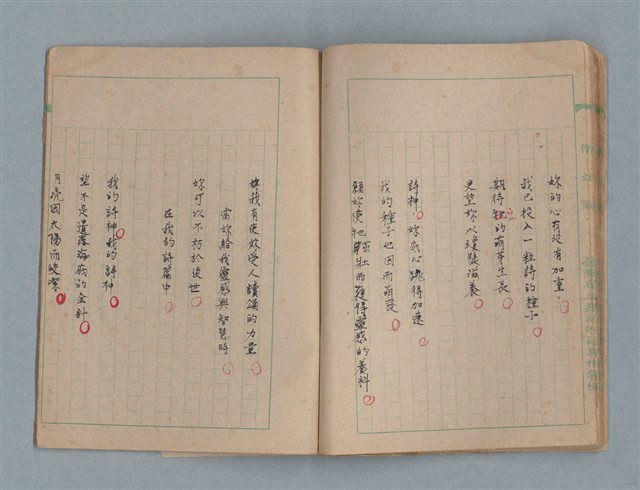 妳的心有沒有加重？
我已投入一粒詩的種子。
期待牠的萌芽生長。
更望妳以環髮滋養。
詩神。妳底心跳得加速。
我的種子也因而萌發。
願妳使牠粗壯而獲得靈感的養料。
妳我有使妳受人讀誦的力量。
當妳給我靈感與智慧時。
妳可以不朽於後世。
在我的詩篇中。
我的詩神。我的詩神。
望不是遺落海底的金針。
月亮因太陽而皎潔。